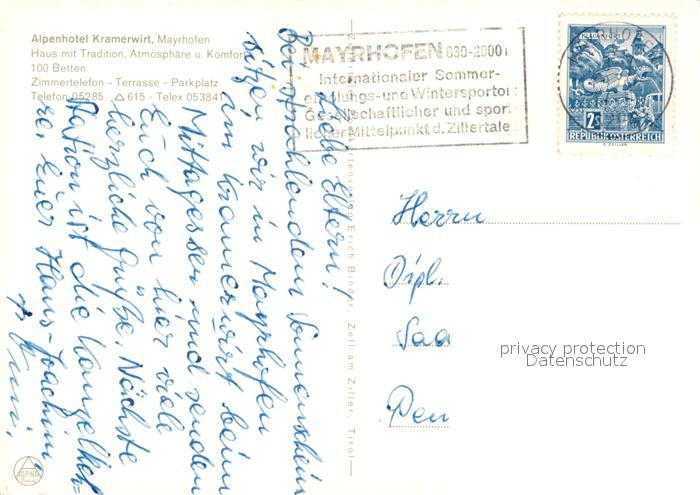 Alpenhotel Kramerwirt, Mayrhofen
Haus mit Tradition, Atmosphäre u. Komfort
100 Betten
Zimmertelefon - Terrasse - Parkplatz
Telefon 05285 △ 615 · Telex 053841
MAYRHOFEN 630-2000
Internationaler Sommer-
erholungs-und Wintersportort
Gesellschaftlicher und sport
licher Mittelpunkt d. Zillertale
2
REPUBLIK ÖSTERREICH
Liebe Eltern!
Bei strahlendem Sonnenschein
sitzen wir in Mayrhofen
am Kramerwirt beim
Mittagessen und senden
Euch von hier viele
herzliche Grüße. Nächste
Station ist die
Euer Hans-Joachim
Kartenverlag Erich Binder, Zell am Ziller, Tirol
Herrn
Dipl.
Saa
Pen
privacy protection
Datenschutz
ALPINA